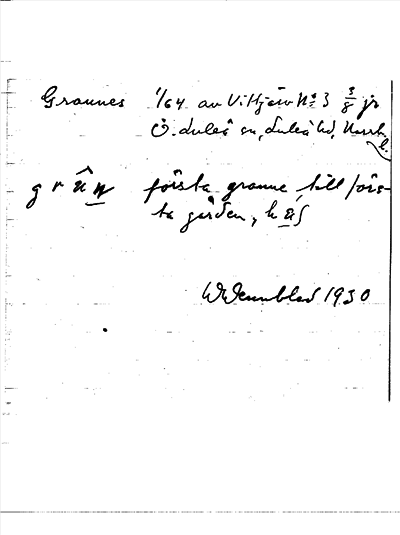 Grannes 1/64 av Vittjärv N:o 3 3/8 jr
Ö. Luleå sn, Luleå hd, Norrb. l.
g r â n första granne till förs-
ta gården, h
W Wennblad 1930